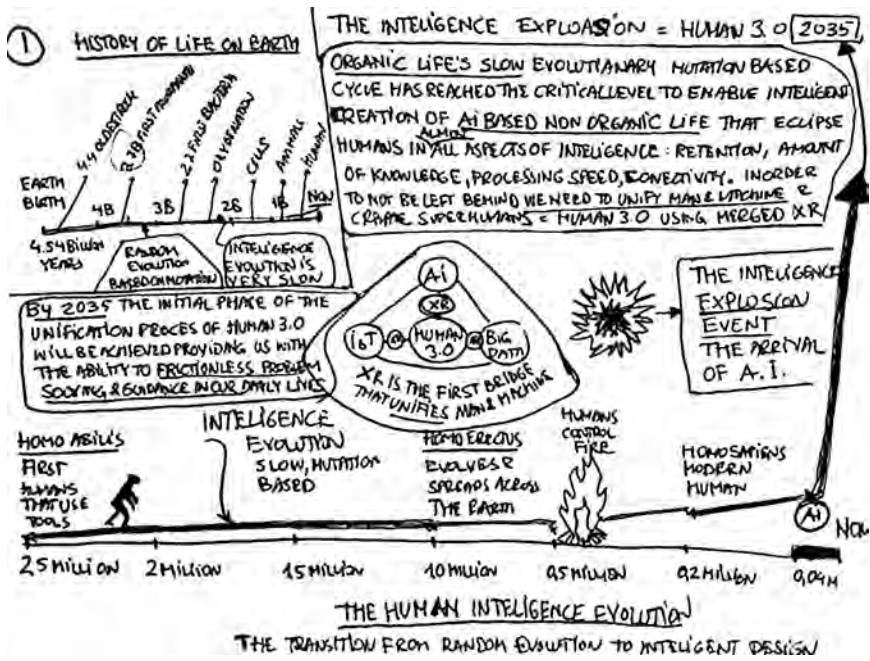 1
HISTORY OF LIFE ON EARTH
4.4 OLDEST ROCK
FIRST
2.2 FIRST BACTERIA
OXYGENATION
CELLS
ANIMALS
HUMAN
EARTH
BIRTH
4B
3B
2B
1B
NOW
4.54 BILLION
YEARS
RANDOM
EVOLUTION
BASED ON MUTATION
INTELLIGENCE
EVOLUTION IS
VERY SLOW
THE INTELIGENCE EXPLOASION = HUMAN 3.0 2035
ORGANIC LIFE'S SLOW EVOLUTIANARY MUTATION BASED
CYCLE HAS REACHED THE CRITICAL LEVEL TO ENABLE INTELIGENT
CREATION OF Ai BASED NON ORGANIC LIFE THAT ECLIPSE
ALMOST
HUMANS IN ALL ASPECTS OF INTELIGENCE: RETENTION, AMOUNT
OF KNOWLEDGE, PROCESSING SPEED, CONECTIVITY. IN ORDER
TO NOT BE LEFT BEHIND WE NEED TO UNIFY MAN & MACHINE &
CREATE SUPERHUMANS = HUMAN 3.0 USING MERGED XR
BY 2035 THE INITIAL PHASE OF THE
UNIFICATION PROCES OF HUMAN 3.0
WILL BE ACHIEVED PROVIDING US WITH
THE ABILITY TO FRICTIONLESS PROBLEM
SOLVING & GUIDANCE IN OUR DAILY LIVES
Ai
XR
IoT
HUMAN
3.0
BIG
DATA
XR IS THE FIRST BRIDGE
THAT UNIFIES MAN & MACHINE
THE INTELIGENCE
EXPLOSION
EVENT
THE ARRIVAL
OF A.I.
HOMO ABILIS
FIRST
HUMANS
THAT USE
TOOLS
INTELIGENCE
EVOLUTION
SLOW, MUTATION
BASED
HOMO ERECTUS
EVOLVES &
SPREADS ACROSS
THE EARTH
HUMANS
CONTROL
FIRE
HOMOSAPIENS
MODERN
HUMAN
Ai
NOW
2.5 MILLION
2 MILLION
1.5 MILLION
10 MILLION
0,5 MILLION
0,2 MILLION
0,04 M
THE HUMAN INTELIGENCE EVOLUTION
THE TRANSITION FROM RANDOM EVOLUTION TO INTELIGENT DESIGN